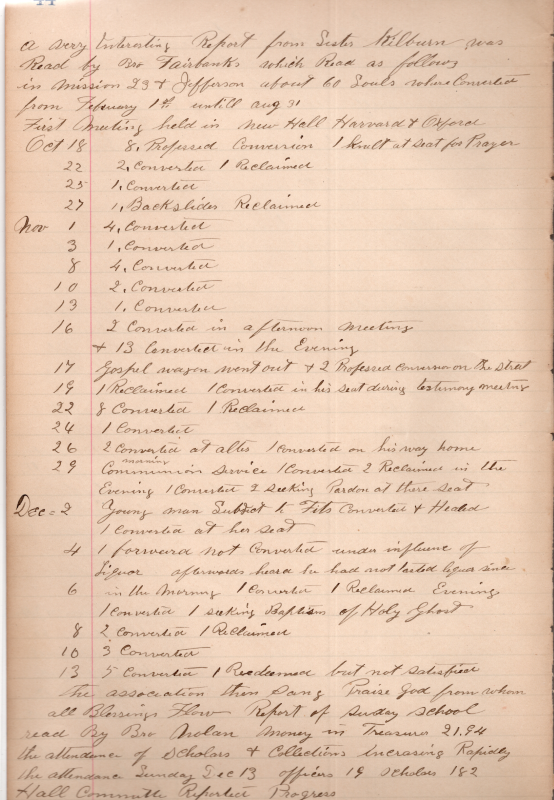 44
a very Interesting Report from Sister Kilburn was
Read by Bro Fairbanks which Read as follows
in mission 23 & Jefferson about 60 Souls where Converted
from February 1st untill aug 31
First Meeting held in New Hall Harvard & Oxford
Oct 18 8, Professed Conversion 1 Knelt at seat for Prayer
22 2, Converted 1 Reclaimed
25 1, Converted
27 1, Backslider Reclaimed
Nov 1 4, Converted
3 1, Converted
8 4, Converted
10 2, Converted
13 1, Converted
16 2 Converted in afternoon meeting
& 13 Converted in the Evening
17 Gospel wagon went out & 2 Professed conversion on the street
19 1 Reclaimed 1 Converted in his seat during testimony meeting
22 8 Converted 1 Reclaimed
24 1 Converted
26 2 Converted at alter 1 Converted on his way home
29 Communion morning Service 1 Converted 2 Reclaimed in the
Evening 1 Converted 2 seeking Pardon at there seat
Dec = 2 Young man Subject to Fits Converted & Healed
1 Converted at her seat
4 1 forward not Converted under influence of
liquor afterwards heard he had not tasted liquor since
6 in the Morning 1 Converted 1 Reclaimed Evening
1 Converted 1 seeking Baptism of Holy Ghost
8 2 Converted 1 Reclaimed
10 3 Converted
13 5 Converted 1 Redeemed but not satisfied
the association then Sang Praise God from whom
all Blessings Flow Report of Sunday School
read By Bro Nolan Money in Treasurer 21.94
the attendance of Scholars & Collections Increasing Rapidly
the attendance Sunday Dec 13 officers 19 Scholars 182
Hall Committe Reported Progress